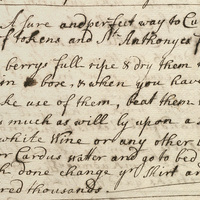 A sure and perfect way to Cu
of tokens and St Anthonyes
berrys full ripe & dry them
in box, & when you have
ke use of them, beat them
s much as will ly upon a
white Wine or any other
or Cardus water and go to bed
done change yr Shirt an
red thousands.